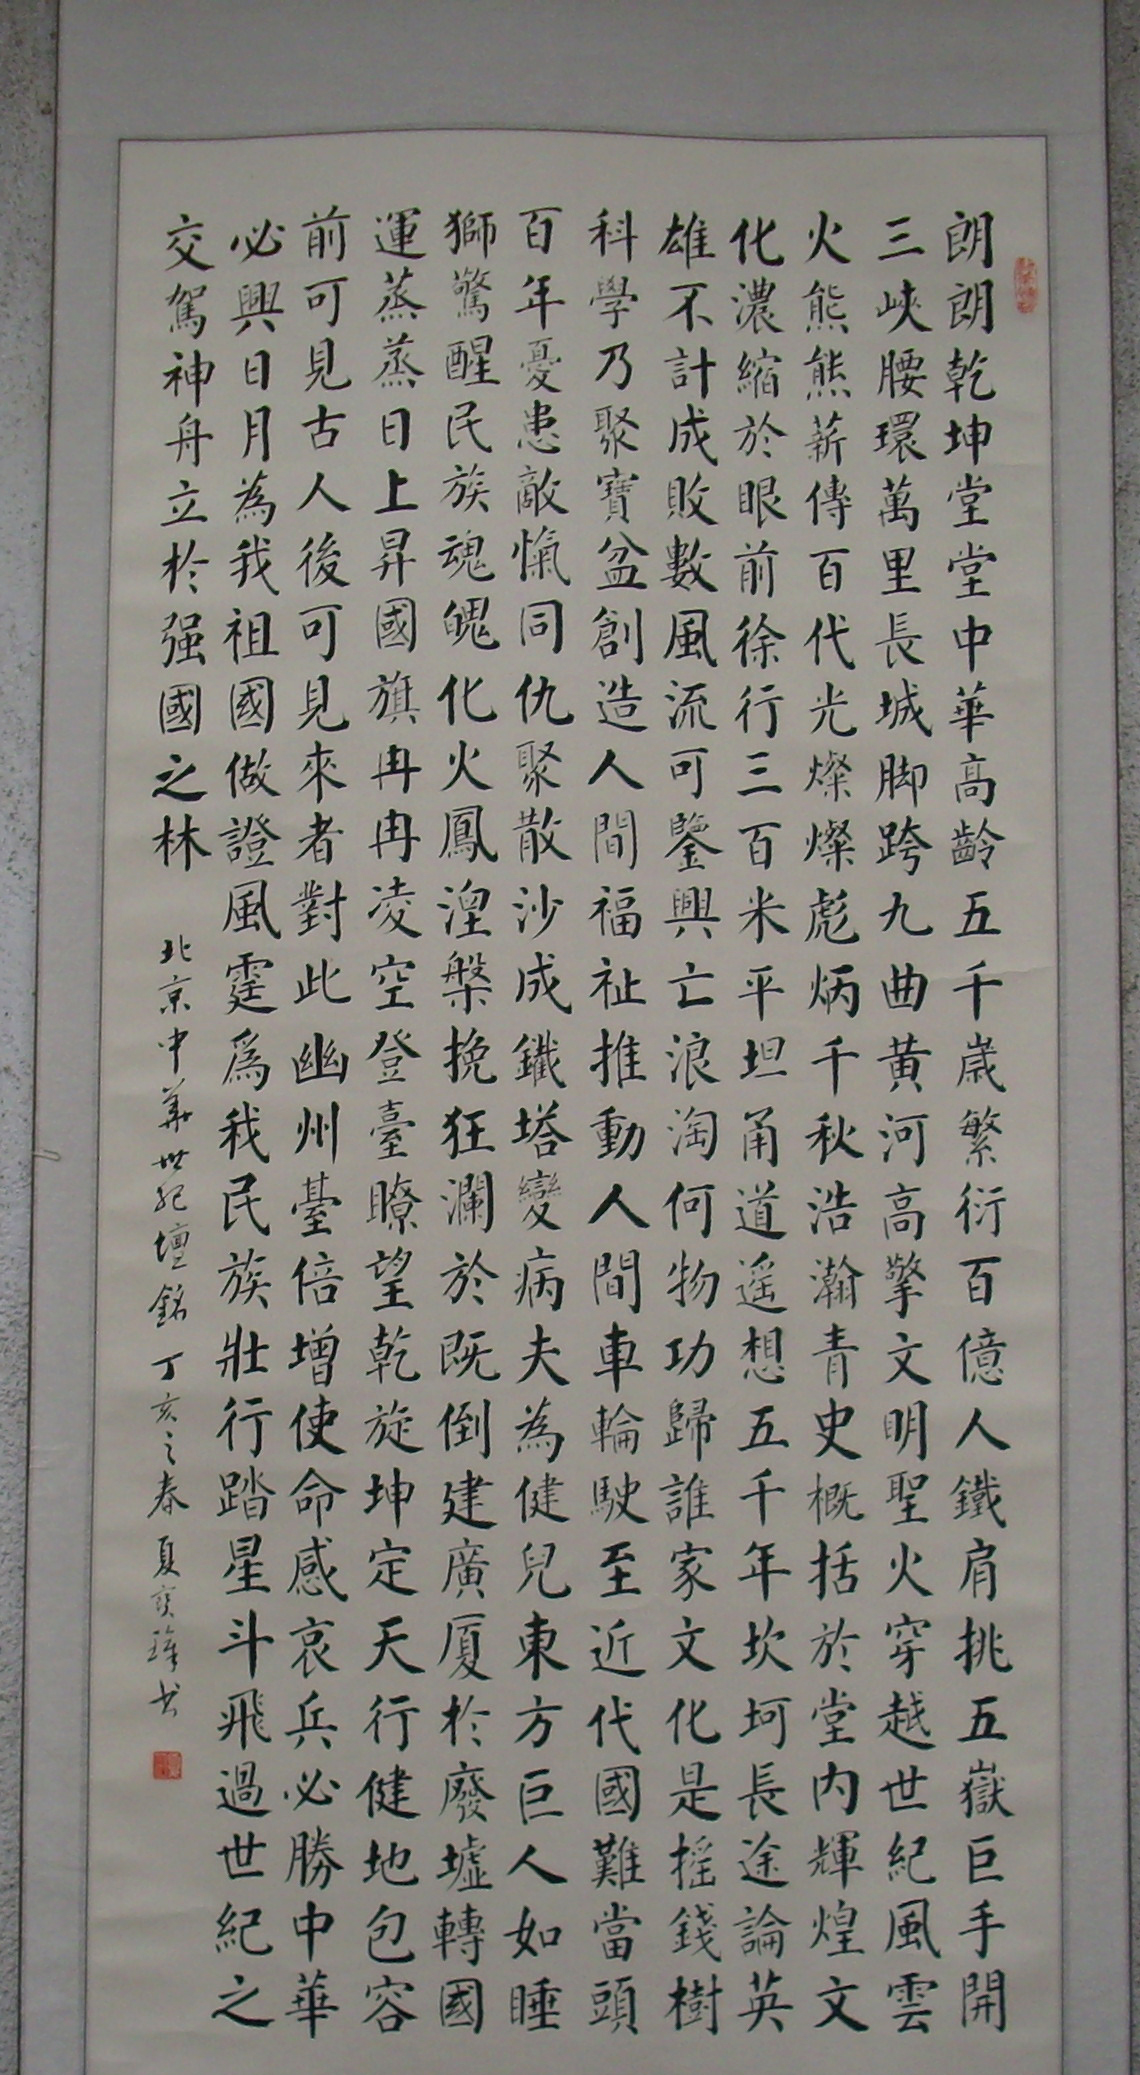 朗朗乾坤堂堂中華高齡五千歲繁衍百億人鐵肩挑五嶽巨手開
三峽腰環萬里長城脚跨九曲黃河高擎文明聖火穿越世紀風雲
火熊熊薪傳百代光燦燦彪炳千秋浩瀚青史概括於堂内輝煌文
化濃縮於眼前徐行三百米平坦甬道遥想五千年坎坷長途論英
雄不計成敗數風流可鑒興亡浪淘何物功歸誰家文化是摇錢樹
科學乃聚寶盆創造人間福祉推動人間車輪駛至近代國難當頭
百年憂患敵愾同仇聚散沙成鐵塔變病夫為健兒東方巨人如睡
獅驚醒民族魂魄化火鳳湼槃挽狂瀾於既倒建廣厦於廢墟轉國
運蒸蒸日上昇國旗冉冉凌空登臺瞭望乾旋坤定天行健地包容
前可見古人後可見來者對此幽州臺倍增使命感哀兵必勝中華
必興日月為我祖國做證風霆爲我民族壯行踏星斗飛過世紀之
交駕神舟立於强國之林
北京中華世紀壇銘 丁亥之春 夏寶璋书